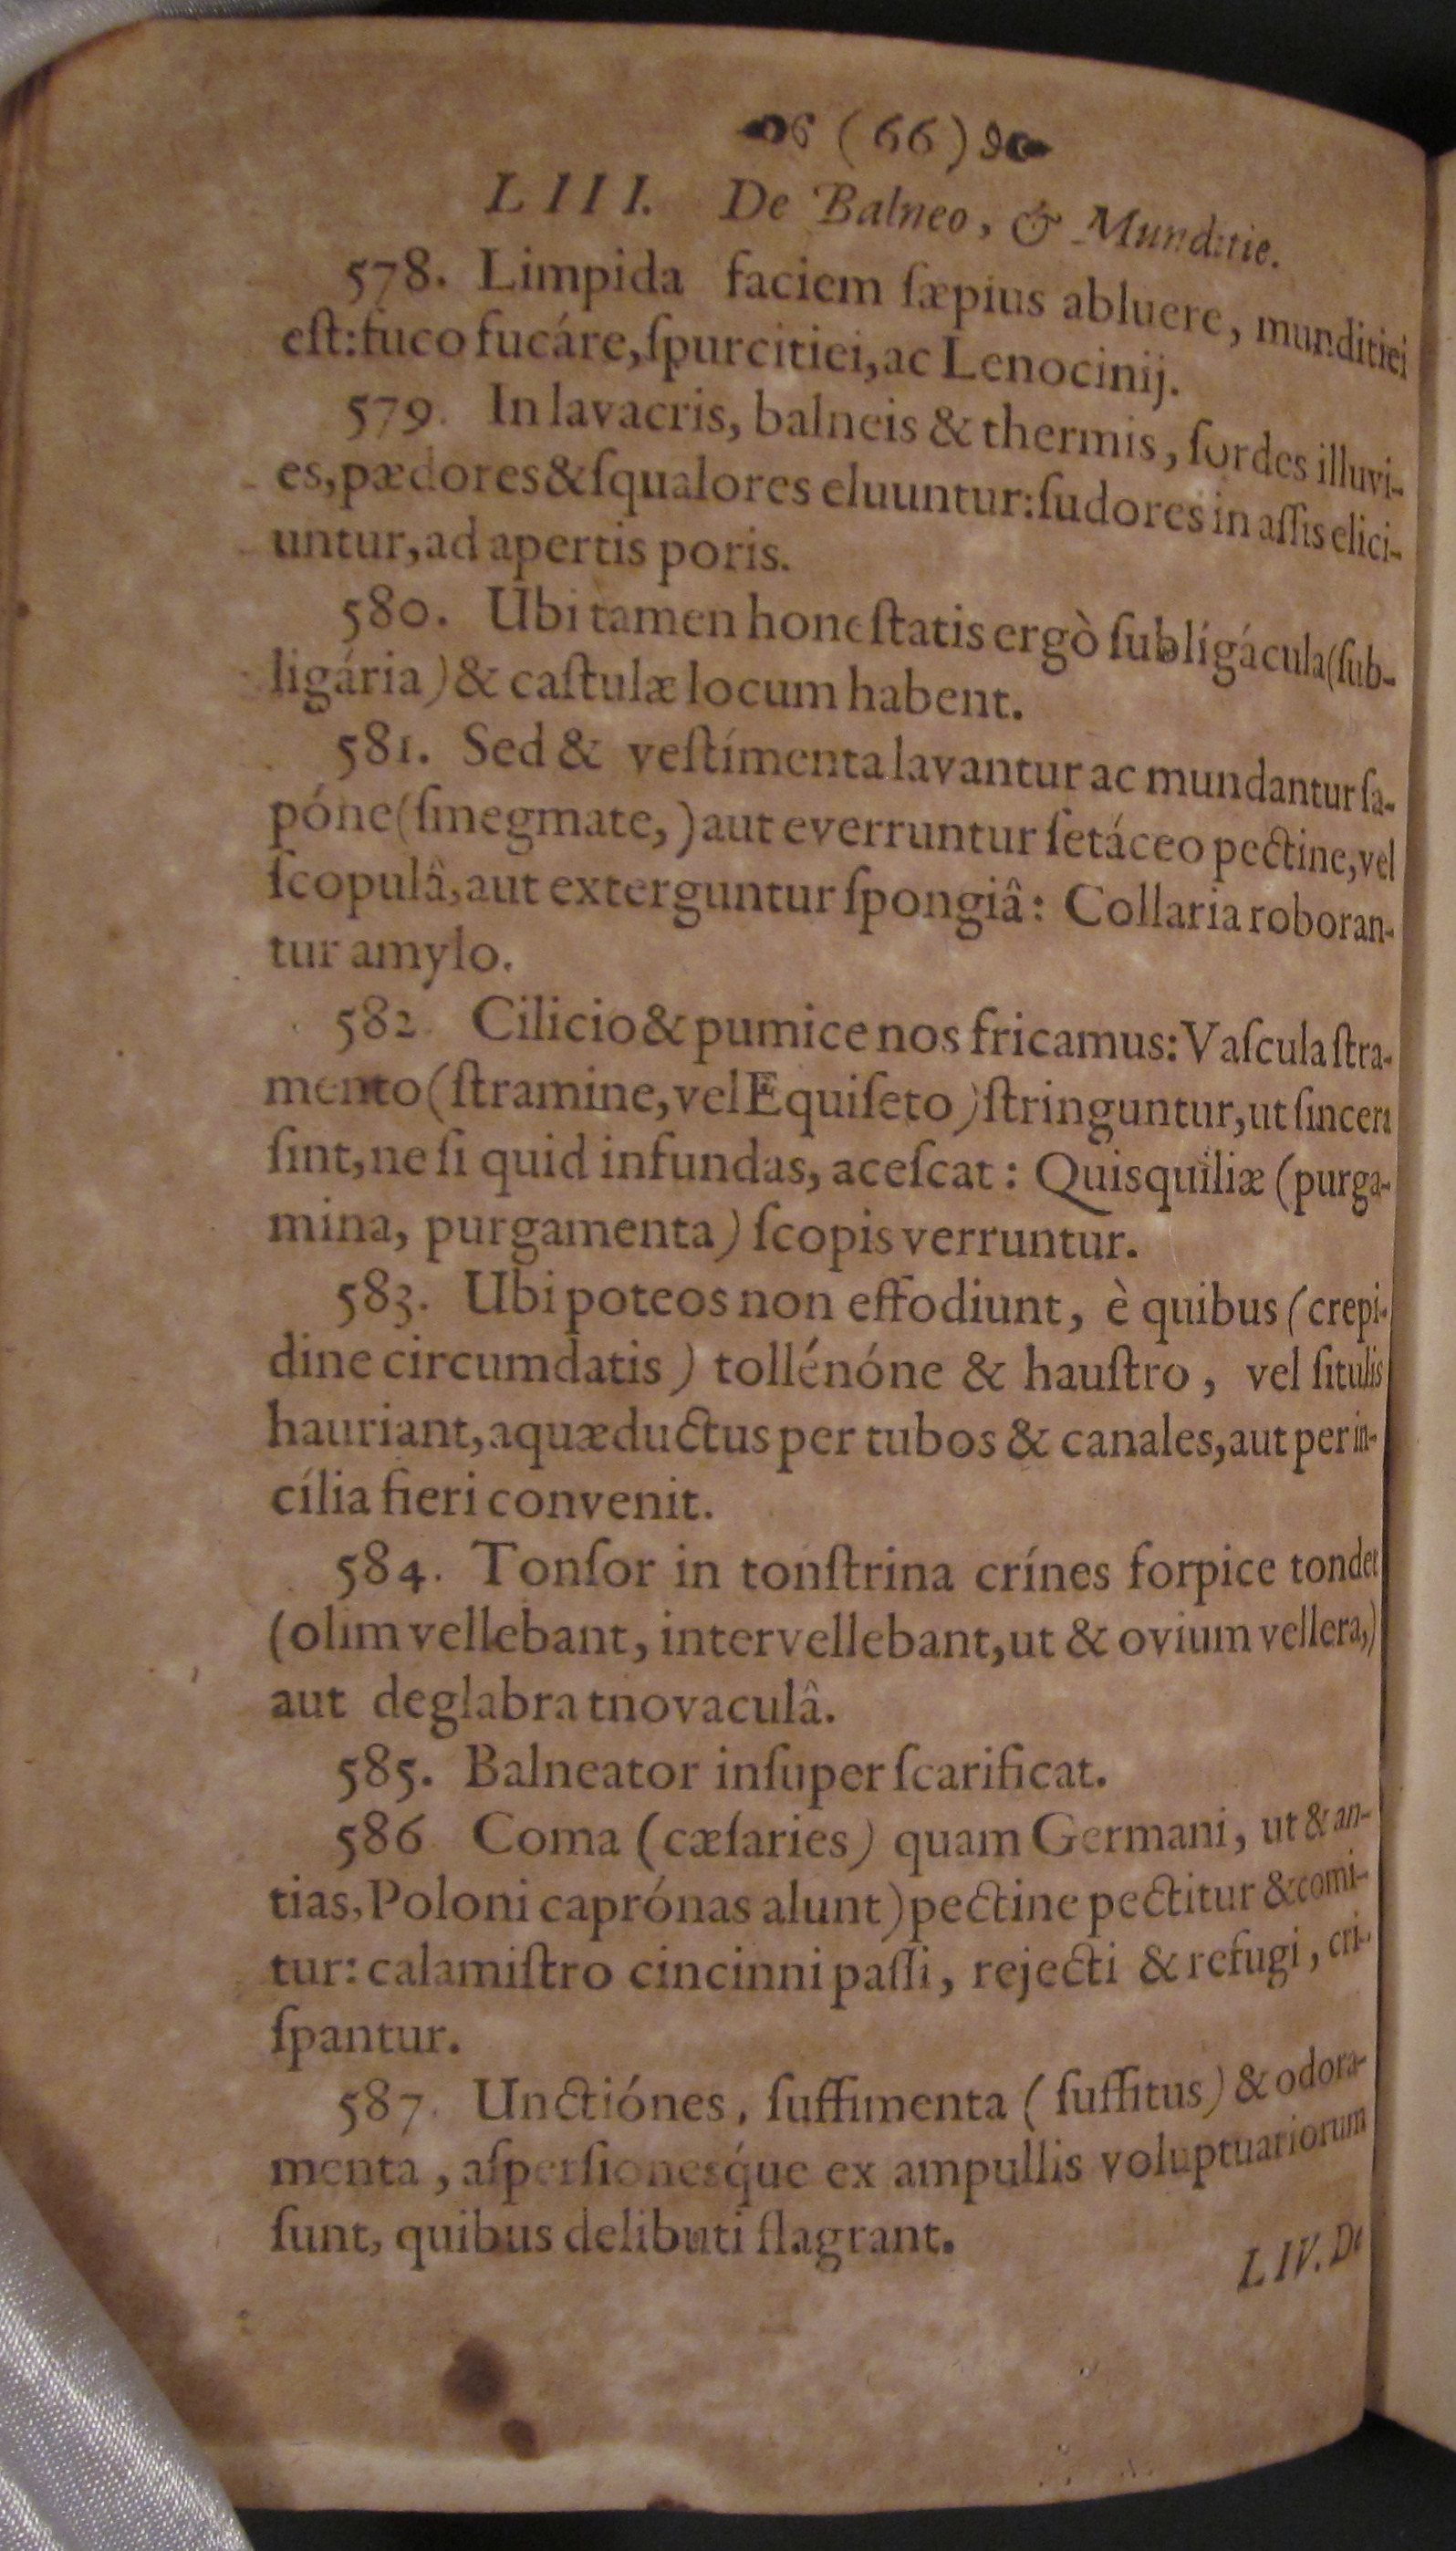 (66)
LIII. De Balneo, & Munditie.
578. Limpida faciem ſæpius abluere, munditiei
eſt: fuco fucáre, ſpurcitiei, ac Lenocinij.
579. In lavacris, balneis & thermis, ſordes illuvi-
es, pædores & ſqualores eluuntur: ſudores in aſſis elici-
untur, ad apertis poris.
580. Ubi tamen honeſtatis ergò ſublígácula (ſub-
ligária) & caſtulæ locum habent.
581. Sed & veſtímenta lavantur ac mundantur ſa-
póne (ſmegmate,) aut everruntur ſetáceo pectine, vel
ſcopulâ, aut exterguntur ſpongiâ: Collaria roboran-
tur amylo.
582. Cilicio & pumice nos fricamus: Vaſcula ſtra-
mento (ſtramine, vel Equiſeto) ſtringuntur, ut ſincera
ſint, ne ſi quid infundas, aceſcat: Quisquiliæ (purga-
mina, purgamenta) ſcopis verruntur.
583. Ubi poteos non effodiunt, è quibus (crepi-
dine circumdatis) tollénóne & hauſtro, vel ſitulis
hauriant, aquæductus per tubos & canales, aut per in-
cília fieri convenit.
584. Tonſor in tonſtrina crínes forpice tondet
(olim vellebant, intervellebant, ut & ovium vellera,)
aut deglabra tnovaculâ.
585. Balneator inſuper ſcarificat.
586 Coma (cæſaries) quam Germani, ut & an-
tias, Poloni caprónas alunt) pectine pectitur & comi-
tur: calamiſtro cincinni paſſi, rejecti & refugi, cri-
ſpantur.
587. Unctiónes, ſuffimenta (ſuffitus) & odora-
menta, aſperſionesq́ue ex ampullis voluptuariorum
ſunt, quibus delibuti flagrant.
LIV. De